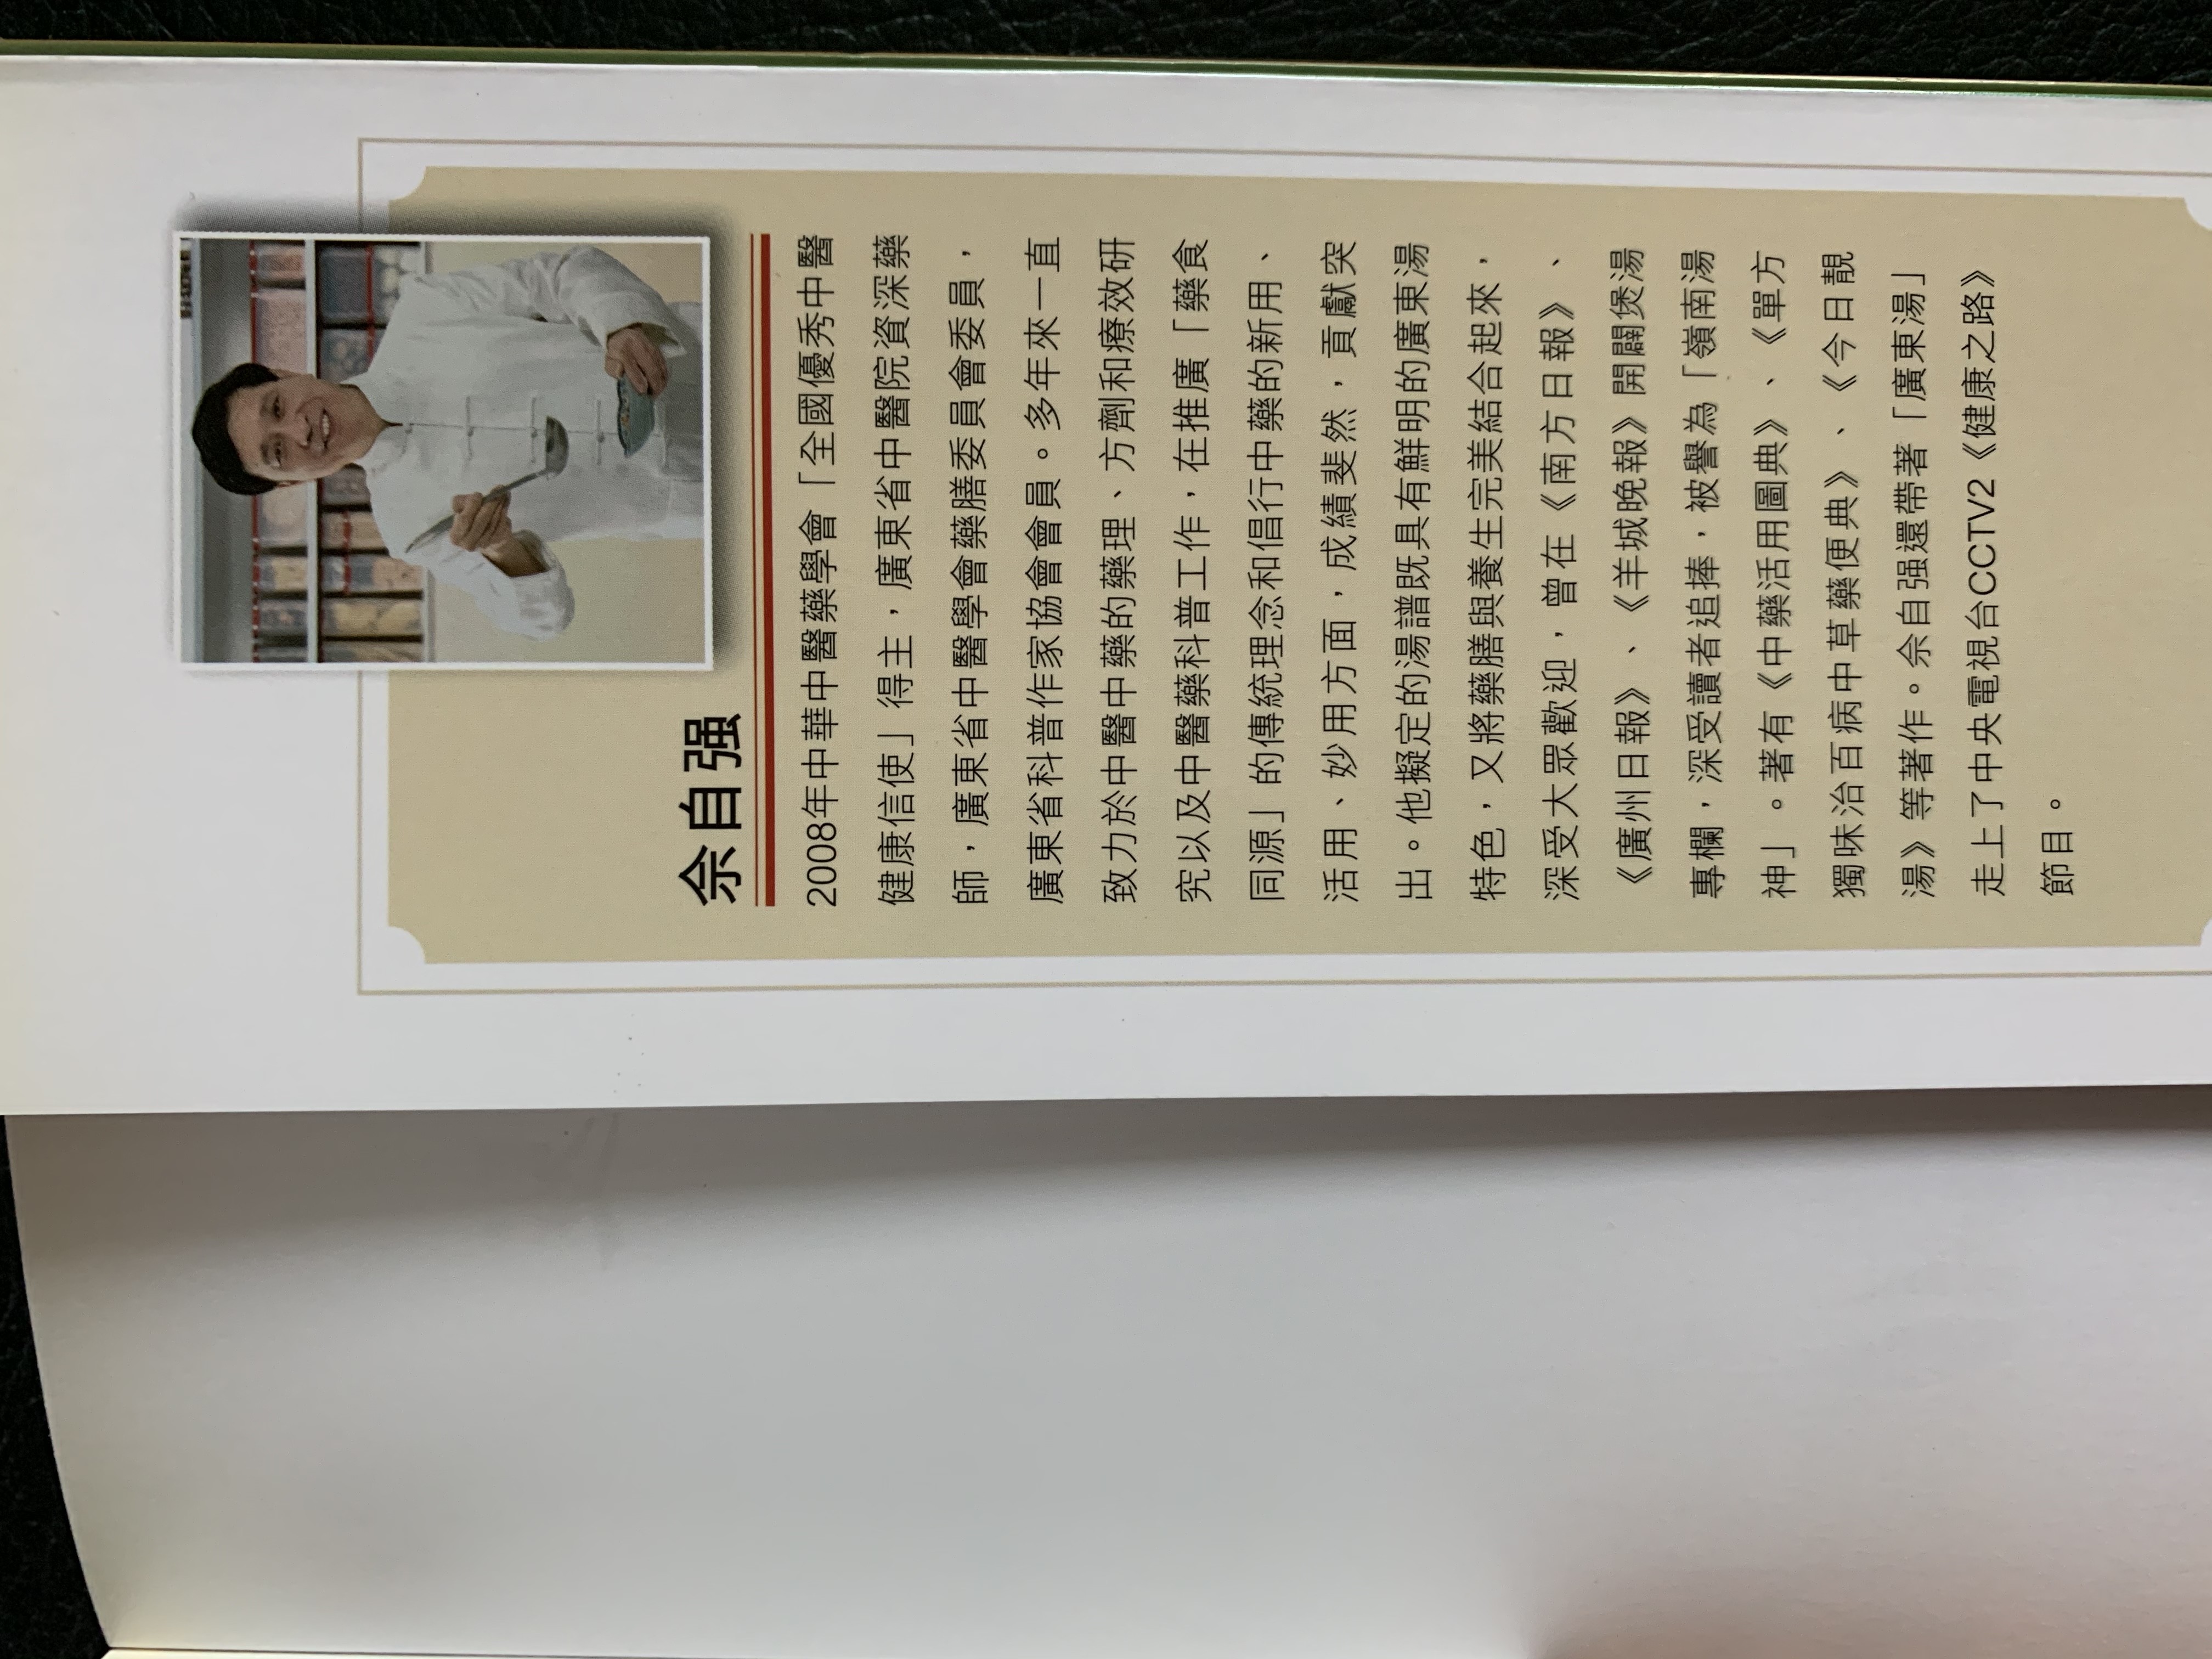 佘自强
2008年中華中醫藥學會「全國優秀中醫
健康信使」得主，廣東省中醫院資深藥
師，廣東省中醫學會藥膳委員會委員，
廣東省科普作家協會會員。多年來一直
致力於中醫中藥的藥理、方劑和療效研
究以及中醫藥科普工作，在推廣「藥食
同源」的傳統理念和倡行中藥的新用、
活用、妙用方面，成績斐然，貢獻突
出。他擬定的湯譜既具有鮮明的廣東湯
特色，又將藥膳與養生完美結合起來，
深受大眾歡迎，曾在《南方日報》、
《廣州日報》、《羊城晚報》開闢煲湯
專欄，深受讀者追捧，被譽為「嶺南湯
神」。著有《中藥活用圖典》、《單方
獨味治百病中草藥便典》、《今日靚
湯》等著作。佘自强還帶著「廣東湯」
走上了中央電視台CCTV2《健康之路》
節目。